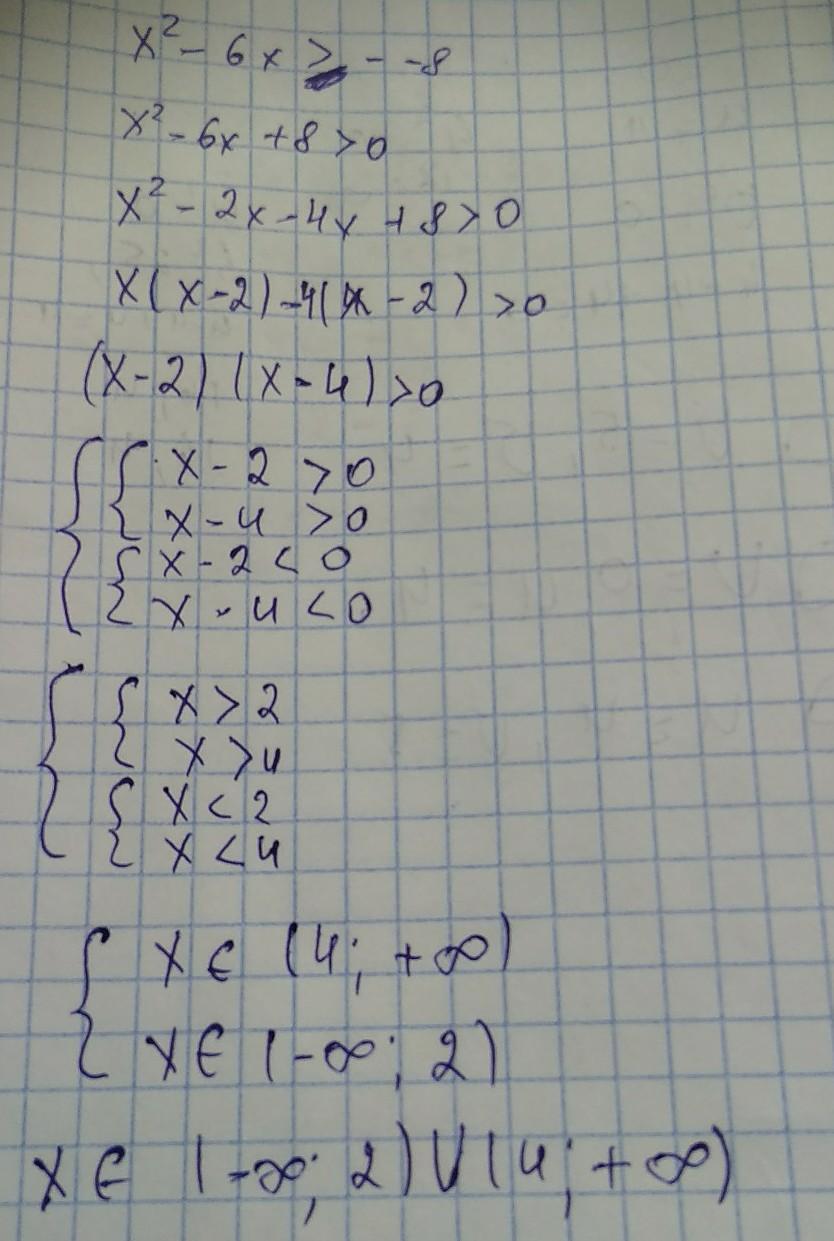 x² - 6x > - -8
x² - 6x + 8 > 0
x² - 2x - 4x + 8 > 0
x(x-2) -4(x - 2) > 0
(x-2) (x-4) > 0
{ { x - 2 > 0
x - 4 > 0
{ x - 2 < 0
x - 4 < 0
{ { x > 2
x > 4
{ x < 2
x < 4
{ x ∈ (4; +∞)
x ∈ (-∞; 2)
x ∈ (-∞; 2) ∪ (4; +∞)